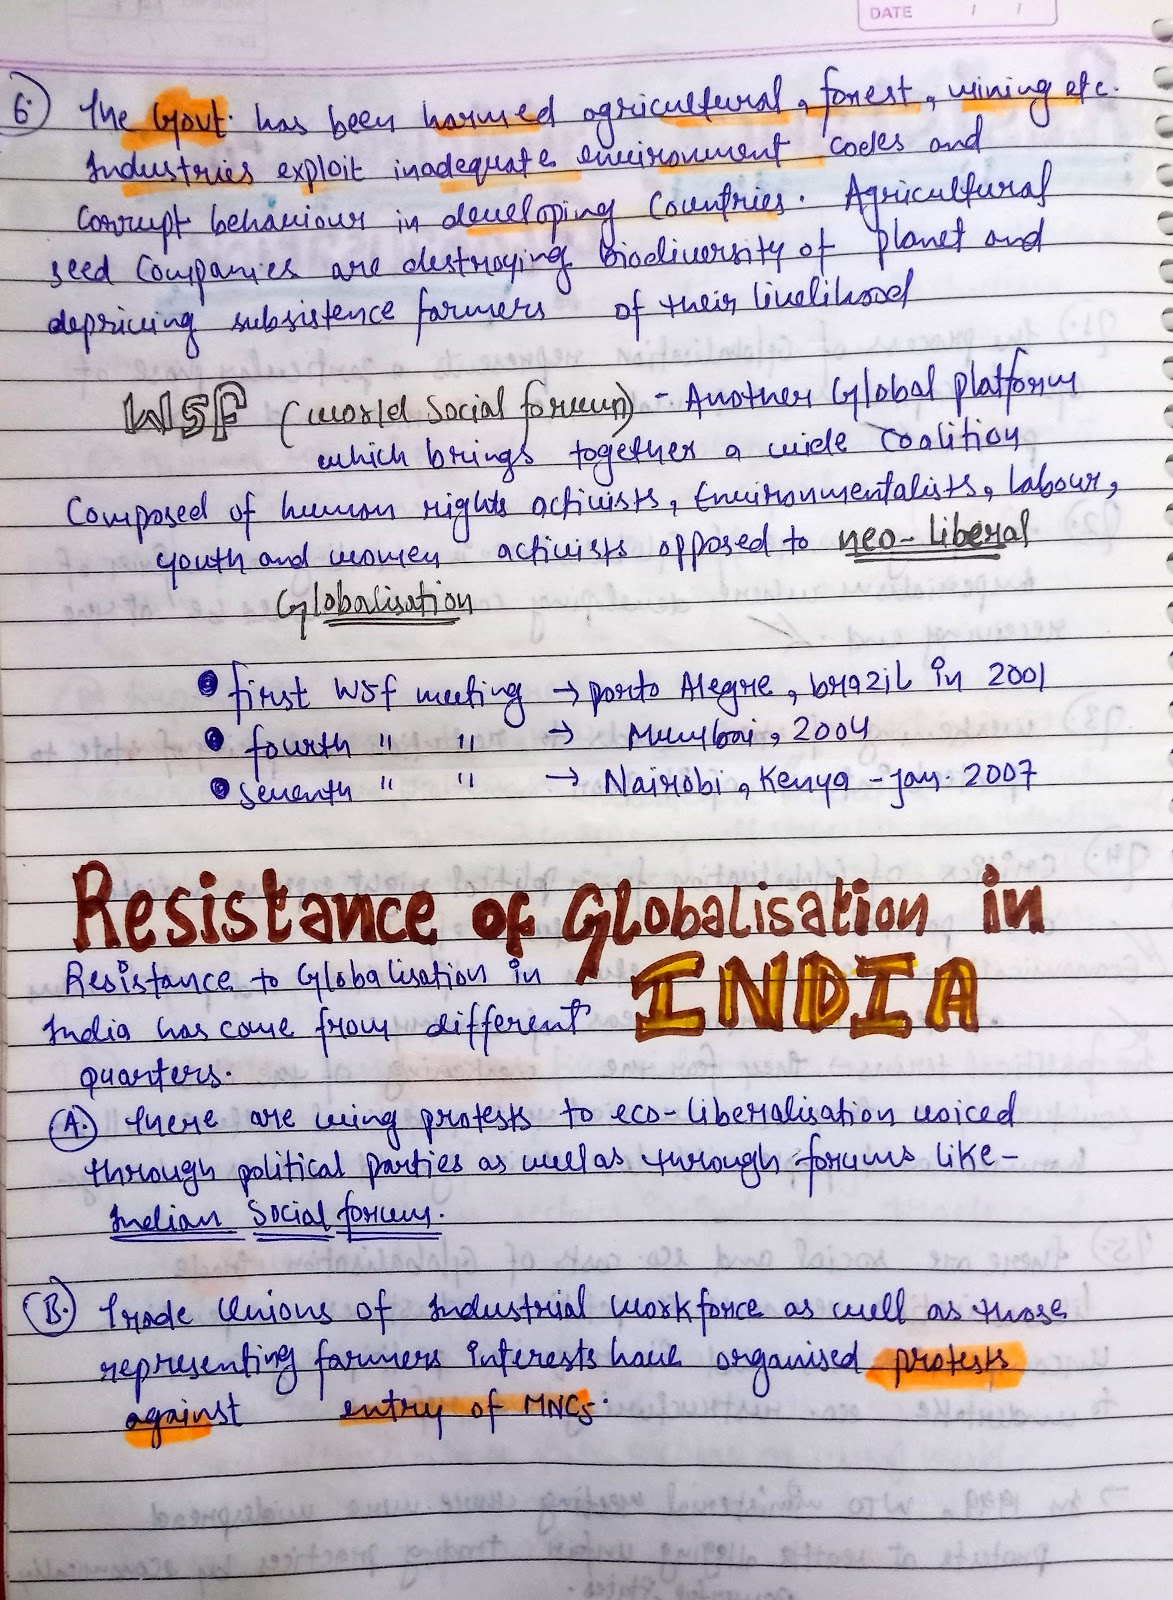 DATE / /
6. The Govt. has been harmed agricultural, forest, mining etc.
Industries exploit inadequate environment codes and
Corrupt behaviour in developing Countries. Agricultural
seed Companies are destroying biodiversity of planet and
depriving subsistence farmers of their livelihood
WSF (World Social forum) - Another Global platform
which brings together a wide coalition
Composed of human rights activists, Environmentalists, Labour,
youth and women activists opposed to neo-liberal
Globalisation
first WSF meeting → porto Alegre, brazil in 2001
fourth " " → Mumbai, 2004
seventh " " → Nairobi, Kenya - jan. 2007
Resistance of Globalisation in
INDIA
Resistance to Globalisation in
India has come from different
quarters.
A. There are wing protests to eco-liberalisation voiced
through political parties as well as through forums like -
Indian Social forum.
B. Trade Unions of Industrial workforce as well as those
representing farmers interests have organised protests
against entry of MNCs.